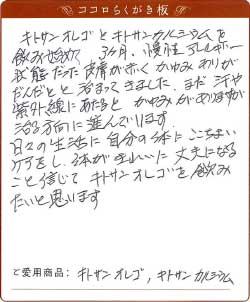 ココロらくがき板
キトサンオレゴとキトサンカルシウムを
飲み始めて 3か月、慢性アレルギー
状態だった皮膚が赤く かゆみ ありが
だんだんと 治まって きました。まだ 汗や
紫外線にあたると かゆみがありますが
治る方向に 進んでいます。
日々の生活に 自分の体に ここちよい
ケアをし、体がきれいに 丈夫になる
こと信じて キトサンオレゴを 飲み
たいと思います
ご愛用商品: キトサン オレゴ, キトサン カルシウム